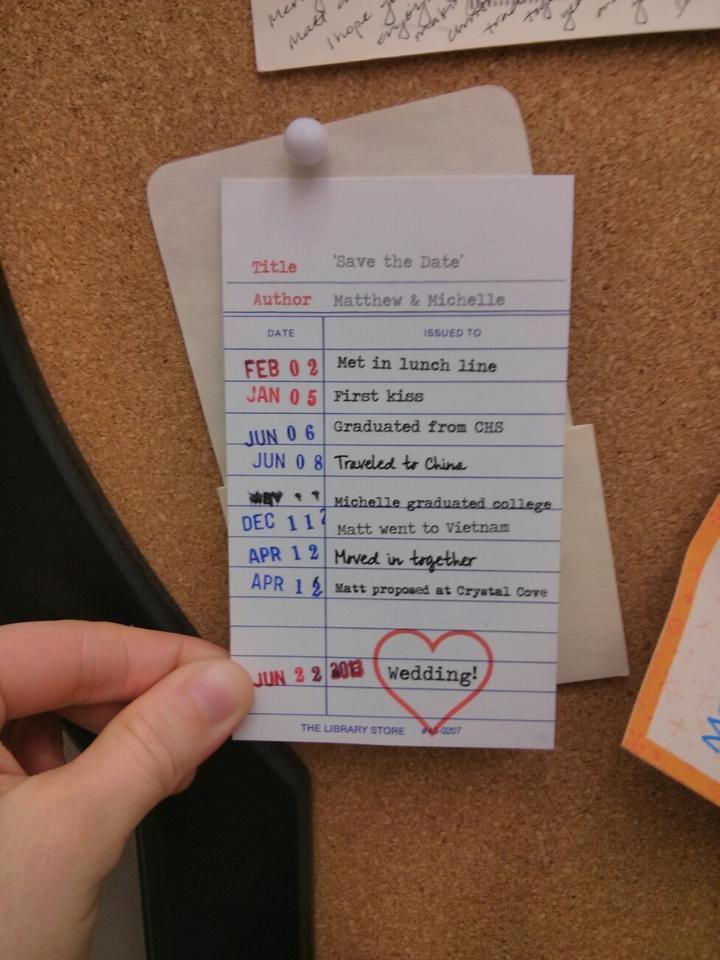 Matt
I hope
enjoy
Title 'Save the Date'
Author Matthew & Michelle
DATE ISSUED TO
FEB 02 Met in lunch line
JAN 05 First kiss
JUN 06 Graduated from CHS
JUN 08 Traveled to China
MAY 11 Michelle graduated college
DEC 11 Matt went to Vietnam
APR 12 Moved in together
APR 12 Matt proposed at Crystal Cove
JUN 22 2013 Wedding!
THE LIBRARY STORE #43-0207